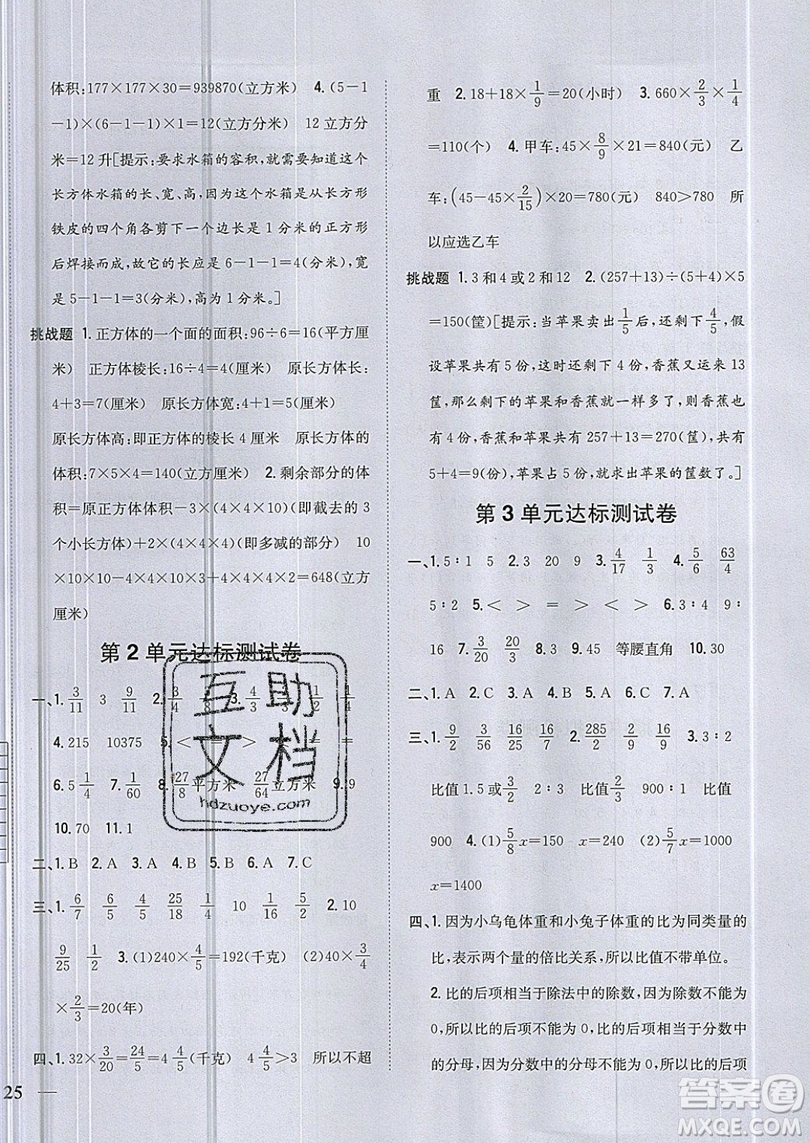 体积:177×177×30=939870(立方米) 4.(5-1
-1)×(6-1-1)×1=12(立方分米) 12立方分
米=12升[提示:要求水箱的容积,就需要知道这个
长方体水箱的长、宽、高,因为这个水箱是一个长方形
铁皮的四个角各剪下一个边长是1分米的正方形
后焊接而成,故它的长应是6-1-1=4(分米),宽是
5-1-1=3(分米),高为1分米。]
挑战题 1.正方体的一个面的面积:96÷6=16(平方厘
米) 正方体棱长:16÷4=4(厘米) 原长方体长:
4+3=7(厘米) 原长方体宽:4+1=5(厘米)
原长方体高:即正方体的棱长4厘米 原长方体的
体积:7×5×4=140(立方厘米) 2.剩余部分的体
积=原大正方体体积-3×(4×4×10)(即截去的3个
小长方体)+2×(4×4×4)(即多减的部分) 10
×10×10-4×4×10×3+4×4×4×2=648(立方
厘米)
第2单元达标测试卷
一、1. 3/11 3 9/11 2. 3/4
4.215 10375 5.< = >
6. 7.5 1/4 8. 1/60 9. 27/8平方米 27/64立方米
10.70 11.1
二、1.B 2.A 3.A 4.B 5.C
三、1. 6/7 6/5 4/5 25/18 1/4 1/10 1/5 2.10
9/25 1/2 3.(1)240×4/5=192(千克) (2)40×3/4
×2/3=20(年)
四、1.32×3/20=24/5=4 4/5(千克) 4 4/5>3 所以不超
25
重 2.18+18×1/9=20(小时) 3.660×2/3×1/4
=110(个) 4.甲车:45×8/9×21=840(元) 乙
车:(45-45×2/15)×20=780(元) 840>780 所
以应选乙车
挑战题 1.3和4或2和12 2.(257+13)÷(5+4)×5
=150(筐)[提示:当苹果卖出1/5后,还剩下4/5。假
设苹果共有5份,这时还剩下4份,香蕉又运来13
筐,那么剩下的苹果和香蕉就一样多了,则香蕉也是
4份。此时,苹果、香蕉共有257+13=270(筐),共有
5+4=9(份),苹果占5份,就求出苹果的筐数了。]
第3单元达标测试卷
一、1.5∶1 5 2.3 20 9 3. 4/17 1/3 4. 5/6 63/4
5∶2 5.< > > = > 6.3∶4 9∶
16 7. 3/20 3/20 8.3 9.45 等腰直角
二、1.A 2.C 3.B 4.A 5.A
三、1. 9/2 3/56 16/25 2. 285/2 2/9 16/25 3.3∶2
比值1.5或3/2 2∶3 比值2/3 900∶1 比值
900 4.(1)5/8x=150 x=240 (2)5/7x=1000
x=1400
四、1.因为小乌龟体重和小兔子体重的比为同类量的
比,表示两个量的倍比关系,所以比值不带单位。
2.比的后项相当于除法中的除数,因为除数不能为
0,所以比的后项不能为0;比的后项相当于分数中
的分母,因为分数中的分母不能为0,所以比的后项
互助
文档
hdzuoye.com
答案圈
MXQE.COM